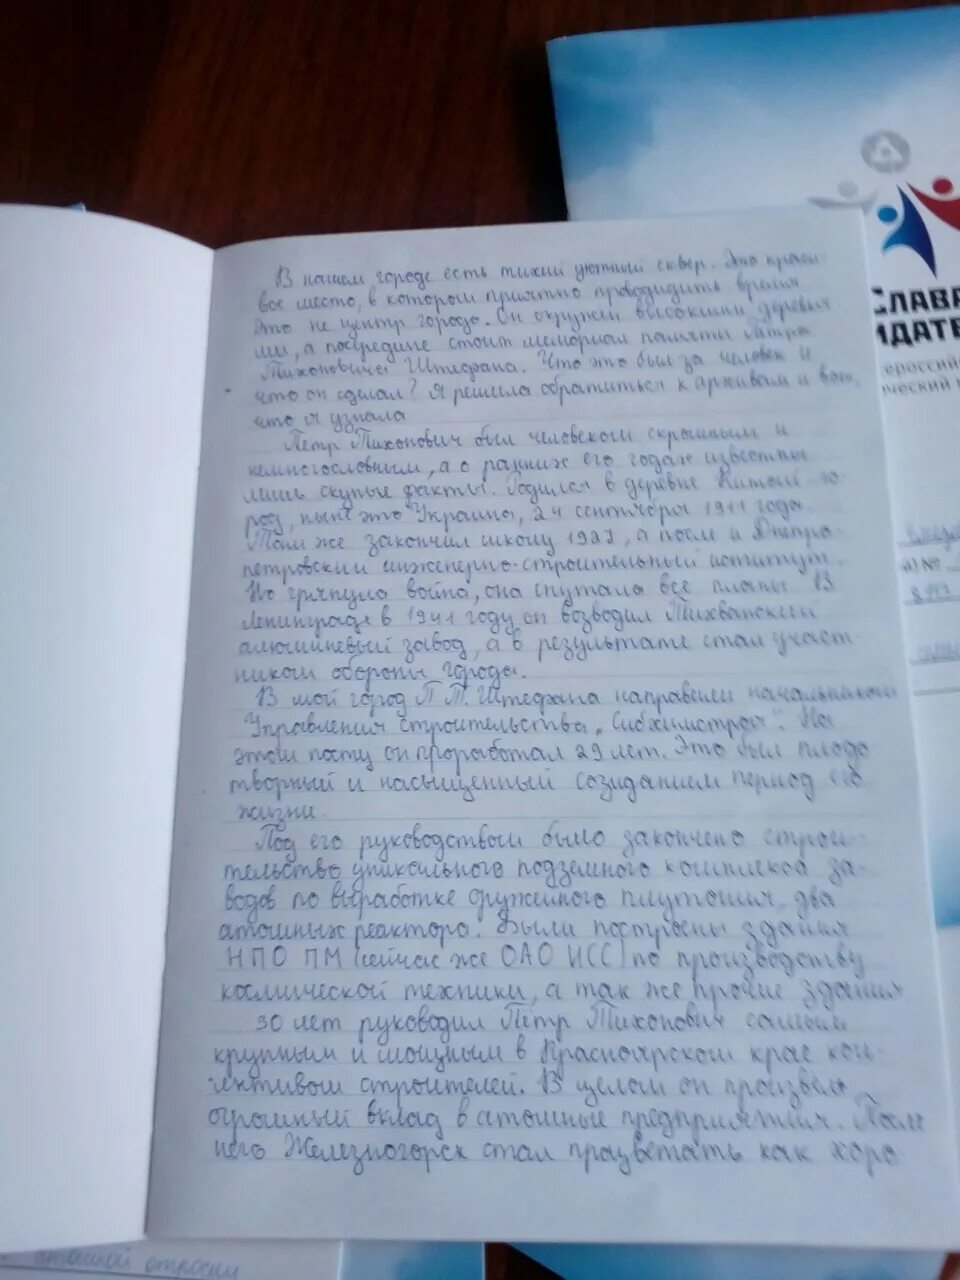 СЛАВА
ИДАТЕ
ероссий
ческий
а) №
В нашем городе есть тихий уютный сквер. Это краси-
вое место, в котором приятно проводидить время
Это не центр города. Он окружен высокими деревья
ми, а посередине стоит мемориал памяти Петра
Тихоновича Штефана. Что это был за человек и
что он сделал? Я решила обратиться к архивам и вот,
что я узнала
Пётр Тихонович был человеком скромным и
немногословным, а о ранних его годах известны
лишь скупые факты. Родился в деревне Китай-го-
род, ныне это Украина, 24 сентября 1911 года.
Там же закончил школу 1927, а после и Днепро
петровский инженерно-строительный иститут.
Но грянула война, она спутала все планы. В
Ленинграде в 1941 году он возводил Тихвинский
алюминевый завод, а в результате стал участ-
ником обороны города.
В мой город П.Т. Штефана направили начальником
Управления строительства „Сибхимстрой". На
этом посту он проработал 29 лет. Это был плодо
творный и насыщенный созиданием период его
жизни.
Под его руководством было закончено строи-
тельство уникального подземного комплекса за-
водов по выработке оружейного плутония, два
атомных реактора. Были построены здания
НПО ПМ (сейчас же ОАО ИСС) по производству
космической техники, а так же прочие здания
30 лет руководил Пётр Тихонович самым
крупным и мощным в Красноярском крае кол-
лективом строителей. В целом он произвёл
огромный вклад в атомные предприятия. После
него Железногорск стал процветать как хоро
атомной отросли